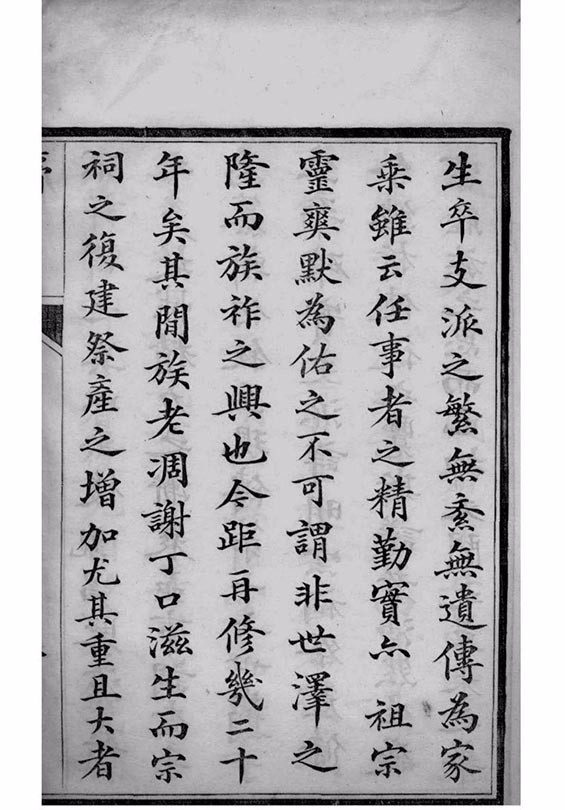 生卒支派之繁無紊無遺傳為家
乘雖云任事者之精勤實亦 祖宗
靈爽默為佑之不可謂非世澤之
隆而族祚之興也今距再修幾二十
年矣其間族老凋謝丁口滋生而宗
祠之復建祭產之增加尤其重且大者